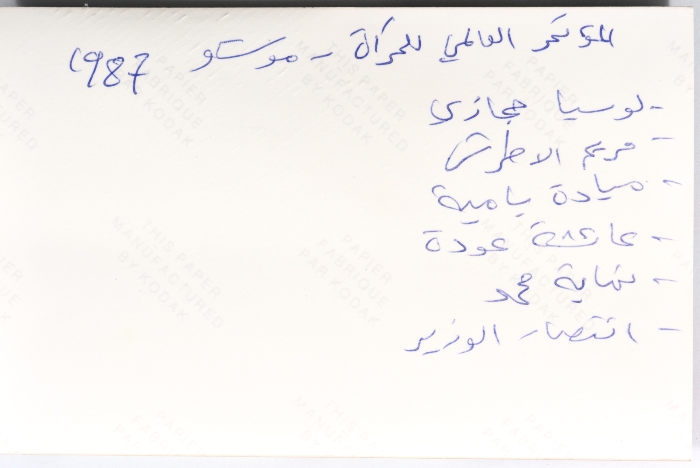 المؤتمر العالمي للمرأة - موسكو 1987
- لوسيا حجازي
- مريم الاطرش
- ميادة بامية
- عائشة عودة
- نهاية محمد
- انتصار الوزير
THIS PAPER MANUFACTURED BY KODAK
PAPIER FABRIQUE PAR KODAK